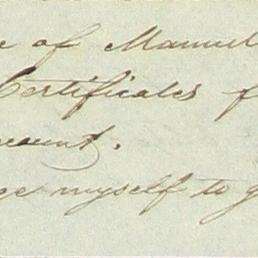 e of Manuel
Certificates f
ount.
ge myself to g